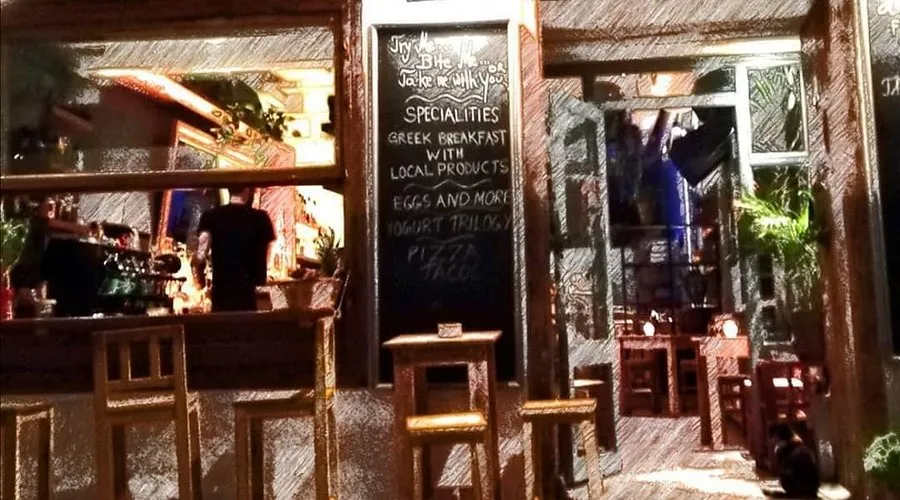 Try Me...
Bite Me...or
Take me with you.
SPECIALITIES
GREEK BREAKFAST
WITH
LOCAL PRODUCTS
EGGS AND MORE
YOGURT TRILOGY
PIZZA
TACOS